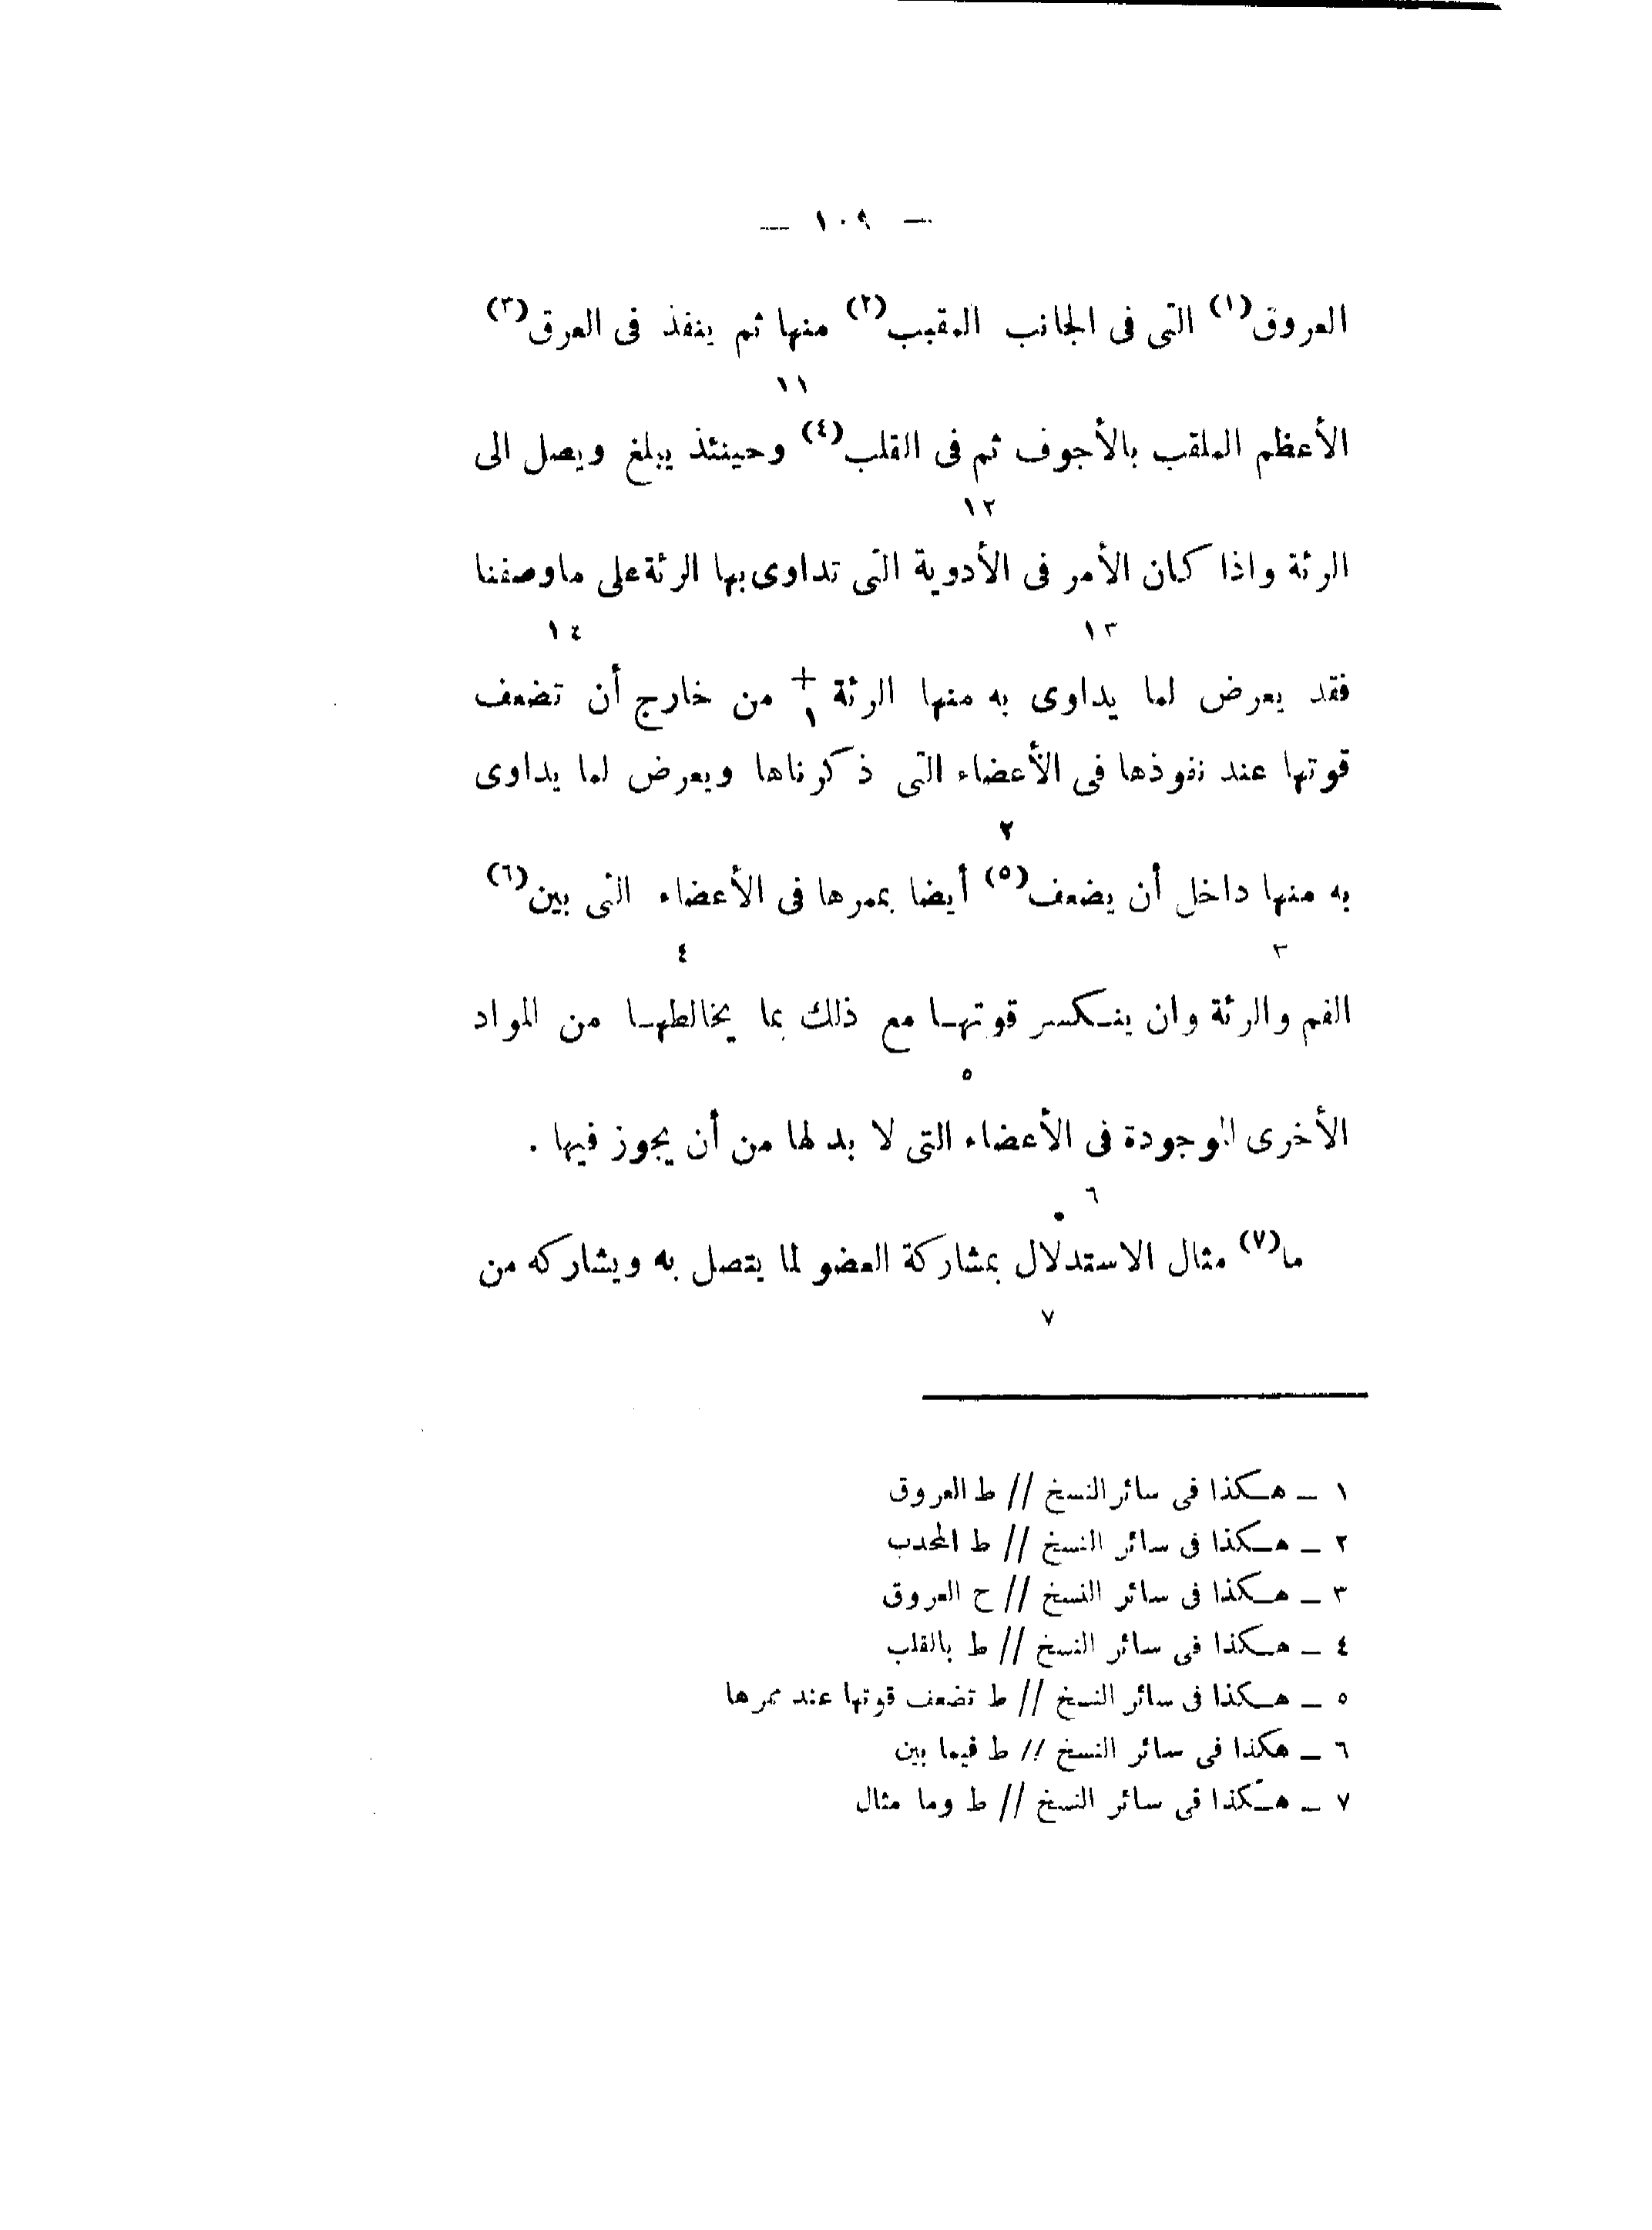 — ١٠٩ —
العروق(١) التى فى الجانب المقبب(٢) منها ثم ينفذ فى العرق(٣)
١١
الأعظم الملقب بالأجوف ثم فى القلب(٤) وحينئذ يبلغ ويصل الى
١٢
الرئة واذا كان الأمر فى الأدوية التى تداوى بها الرئة على ماوصفنا
١٣ ١٤
فقد يعرض لما يداوى به منها الرئة + من خارج أن تضعف
١
قوتها عند نفوذها فى الأعضاء التى ذكرناها ويعرض لما يداوى
٢
به منها داخل أن يضعف(٥) أيضا بممرها فى الأعضاء التى بين(٦)
٣ ٤
الفم والرئة وان ينكسر قوتها مع ذلك بما يخالطها من المواد
٥
الأخرى الموجودة فى الأعضاء التى لا بد لها من أن يجوز فيها .
٦
ما(٧) مثال الاستدلال بمشاركة العضو لما يتصل به ويشاركه من
٧
١ – هكذا فى سائر النسخ // ط العروق
٢ – هكذا فى سائر النسخ // ط المحدب
٣ – هكذا فى سائر النسخ // ح العروق
٤ – هكذا فى سائر النسخ // ط بالقلب
٥ – هكذا فى سائر النسخ // ط تضعف قوتها عند ممرها
٦ – هكذا فى سائر النسخ // ط فيما بين
٧ – هكذا فى سائر النسخ // ط وما مثال